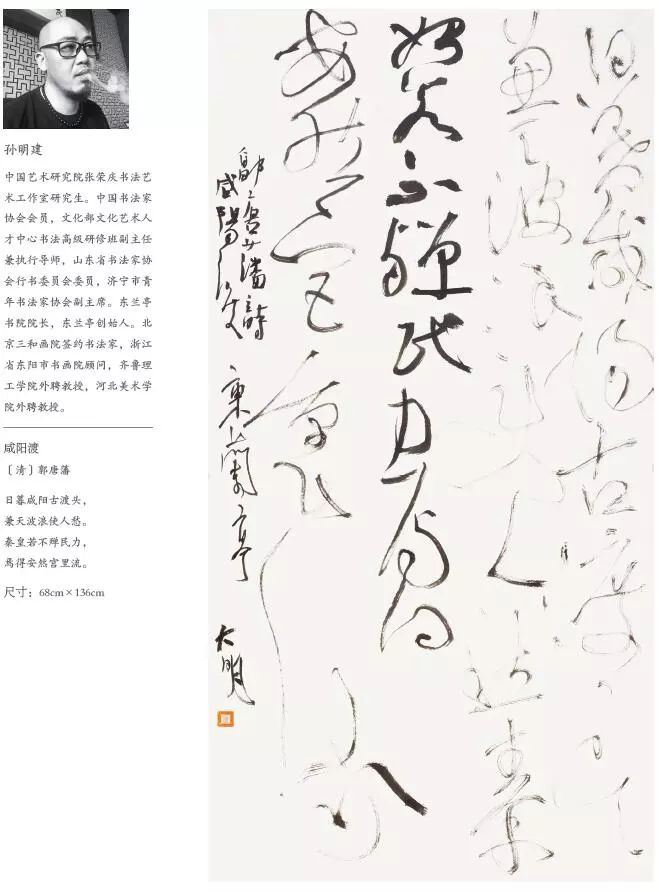 孙明建
中国艺术研究院张荣庆书法艺
术工作室研究生。中国书法家
协会会员，文化部文化艺术人
才中心书法高级研修班副主任
兼执行导师，山东省书法家协
会行书委员会委员，济宁市青
年书法家协会副主席。东兰亭
书院院长，东兰亭创始人。北
京三和画院签约书法家，浙江
省东阳市书画院顾问，齐鲁理
工学院外聘教授，河北美术学
院外聘教授。
咸阳渡
〔清〕郭唐藩
日暮咸阳古渡头，
兼天波浪使人愁。
秦皇若不殚民力，
焉得安然宫里流。
尺寸：68cm×136cm
日暮咸陽古渡頭
若不殫民力焉得
咸陽渡
東蘭亭
大明